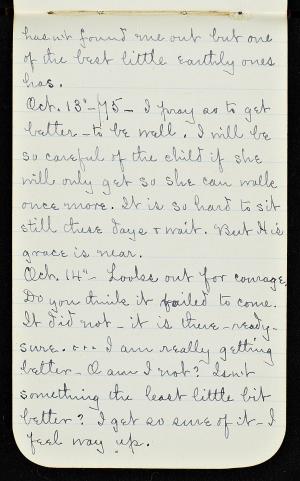 hasn't found me out but one
of the best little earthly ones
has.
Oct. 13"-/75 - I pray so to get
better - to be well. I will be
so careful of the child if she
will only get so she can walk
once more. It is so hard to sit
still these days & wait. But His
grace is near.
Oct. 14" - Looks out for courage.
Do you think it failed to come.
It did not - it is there - ready -
sure. ... I am really getting
better - O am I not? Isn't
something the least little bit
better? I get so sure of it - I
feel way up.